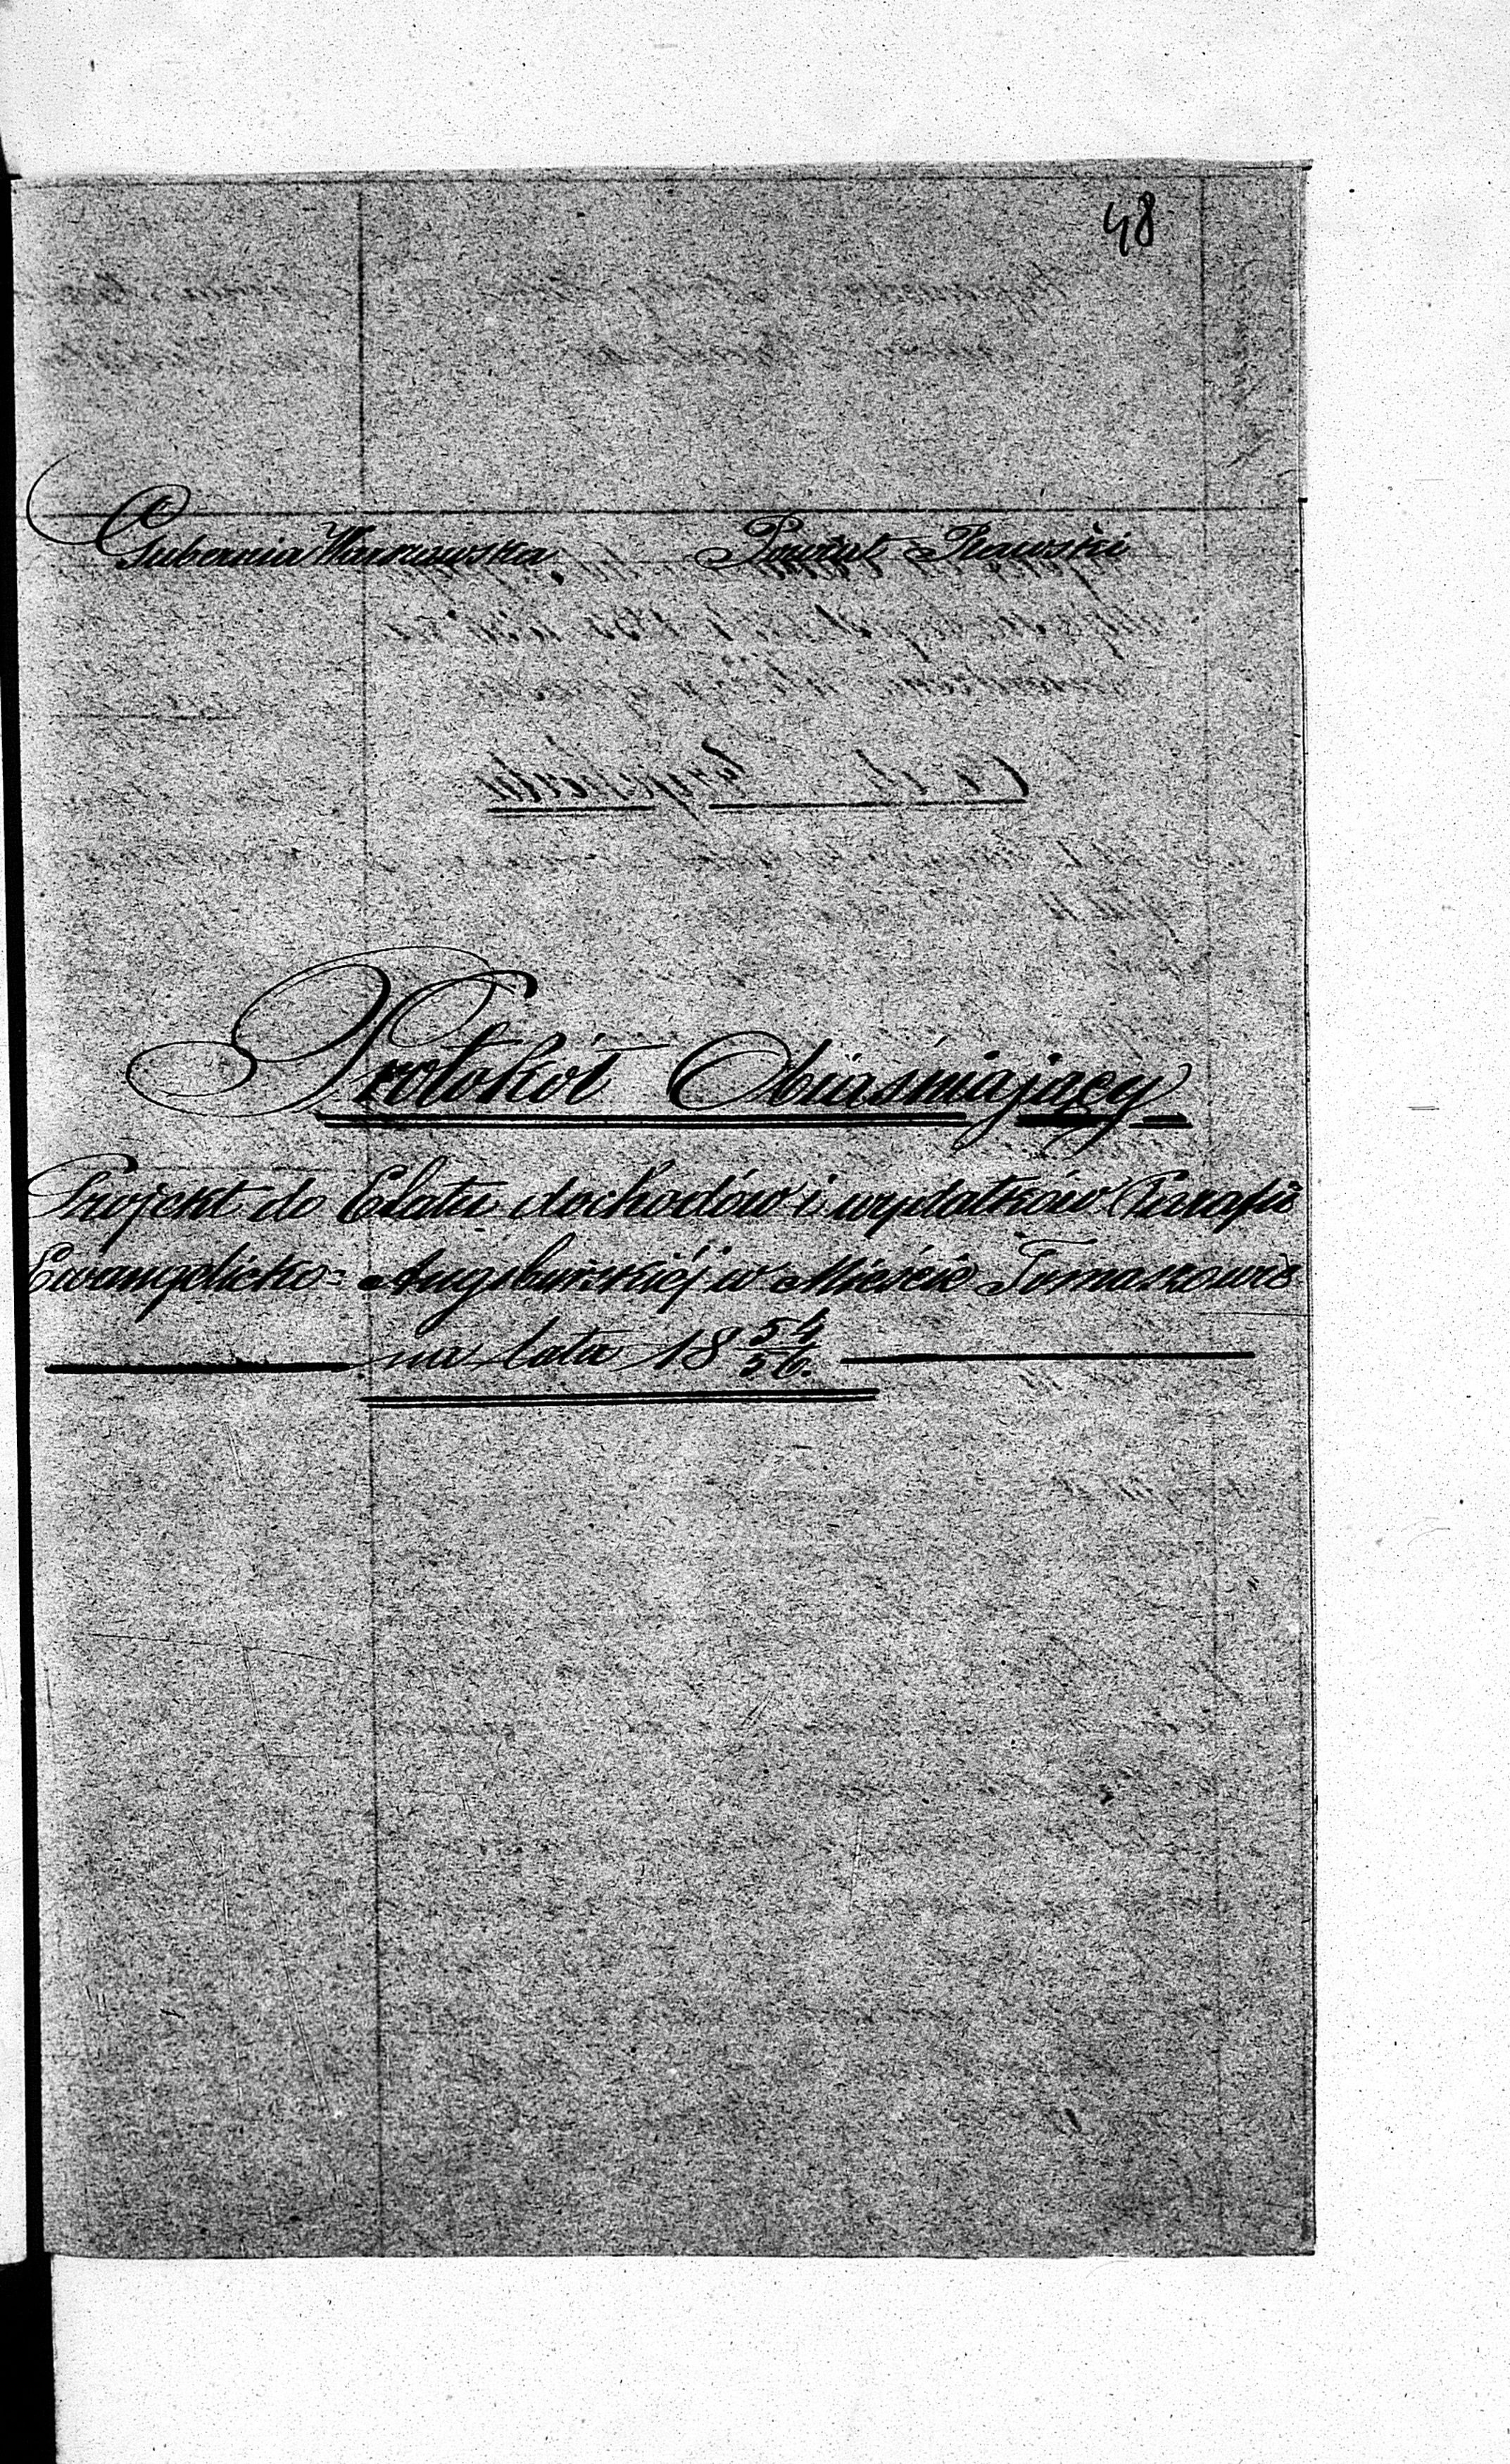 48
Gubernia Warszawska Powiat Rawski
Protokół Obiaśniający
Projekt do Etatu dochodów i wydatków Parafii
Ewangelicko= Augsburskiéj w Mieście Tomaszowie
na lata 18 54/56.